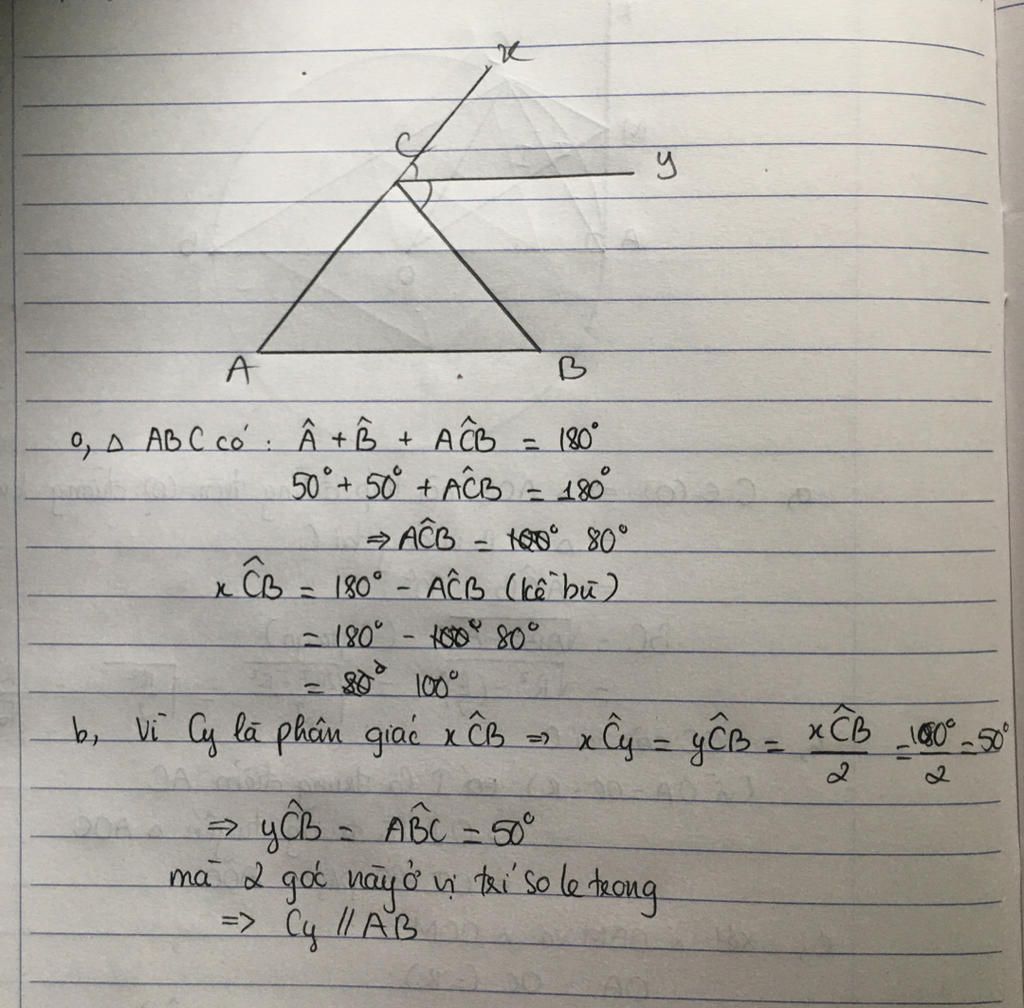 x
C
y
A
B
a, Δ ABC có: Â + B̂ + AĈB = 180°
50° + 50° + AĈB = 180°
⇒ AĈB = 100° 80°
xĈB = 180° - AĈB (kề bù)
= 180° - 100° 80°
= 80° 100°
b, Vì Cy là phân giác xĈB ⇒ xĈy = yĈB = xĈB/2 = 100°/2 = 50°
⇒ yĈB = AB̂C = 50°
mà 2 góc này ở vị trí so le trong
⇒ Cy // AB